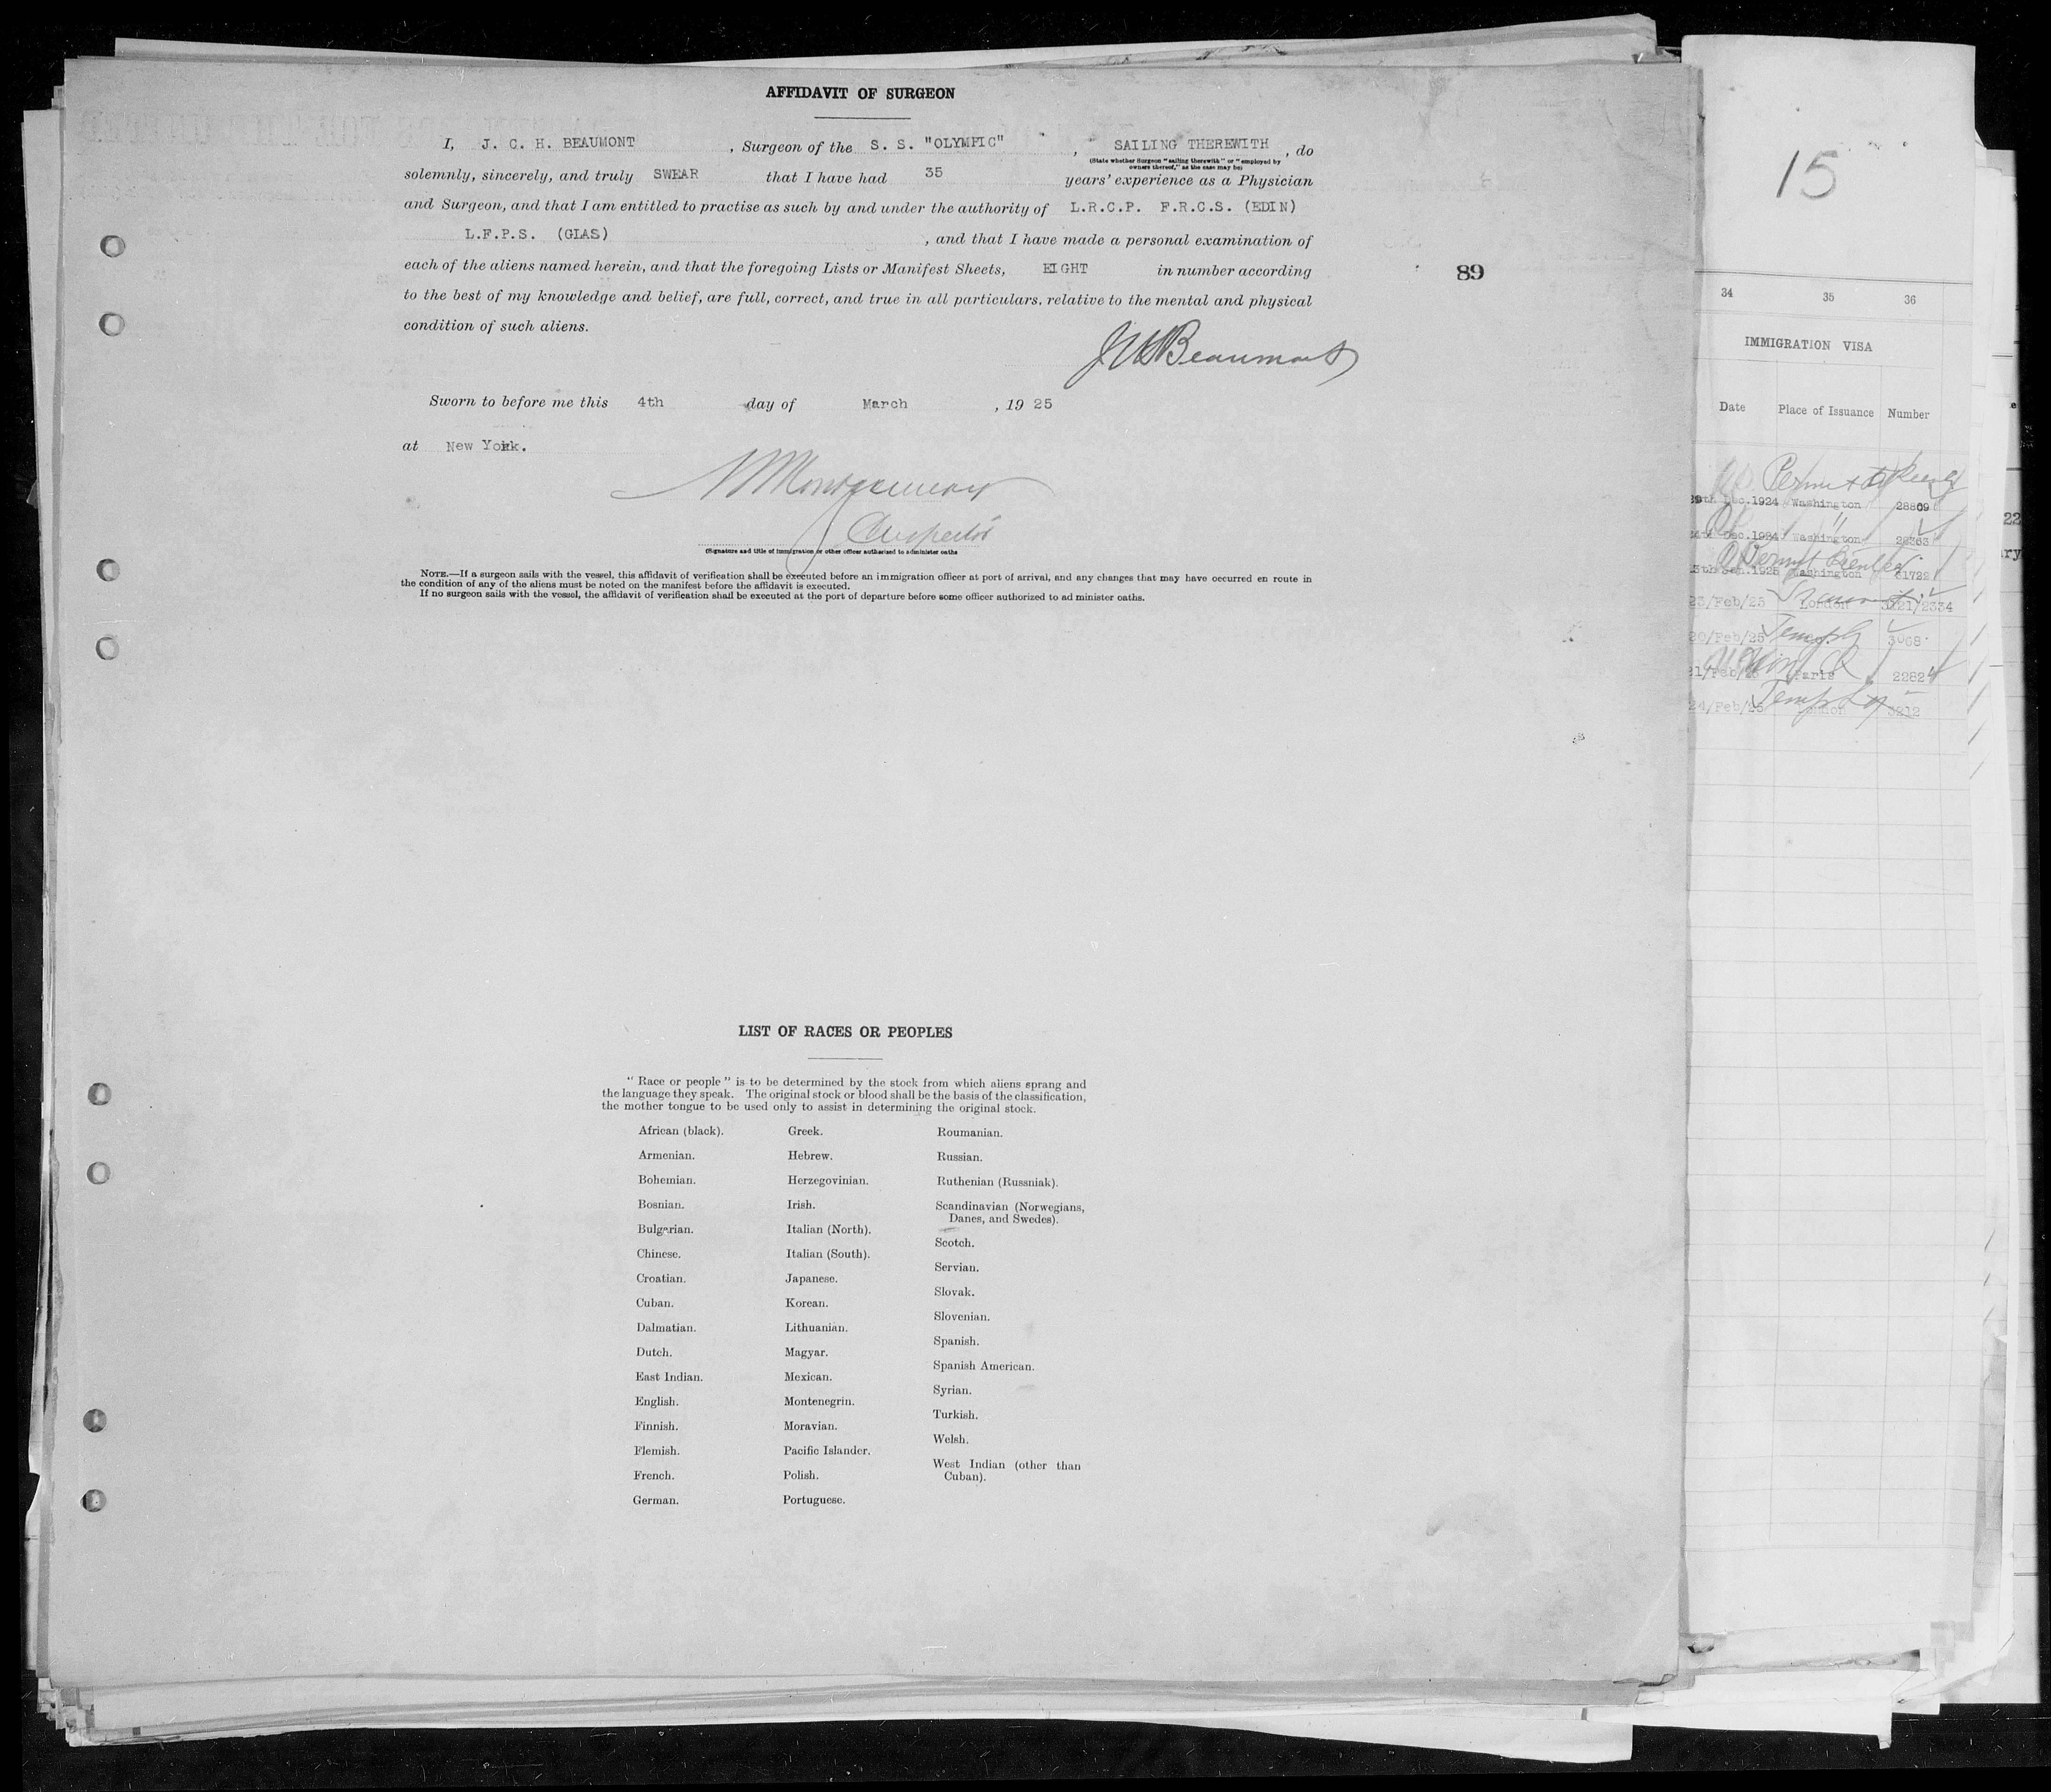 AFFIDAVIT OF SURGEON
I, J. C. H. BEAUMONT , Surgeon of the S. S. "OLYMPIC" , SAILING THEREWITH , do
(State whether Surgeon "sailing therewith" or "employed by
owners thereof," as the case may be)
solemnly, sincerely, and truly SWEAR that I have had 35 years' experience as a Physician
and Surgeon, and that I am entitled to practise as such by and under the authority of L.R.C.P. F.R.C.S. (EDIN)
L.F.P.S. (GLAS) , and that I have made a personal examination of
each of the aliens named herein, and that the foregoing Lists or Manifest Sheets, EIGHT in number according
to the best of my knowledge and belief, are full, correct, and true in all particulars, relative to the mental and physical
condition of such aliens.
89
Beaumont
Sworn to before me this 4th day of March , 19 25
at New York.
Montgomery
Inspector
(Signature and title of immigration or other officer authorised to administer oaths
NOTE.—If a surgeon sails with the vessel, this affidavit of verification shall be executed before an immigration officer at port of arrival, and any changes that may have occurred en route in
the condition of any of the aliens must be noted on the manifest before the affidavit is executed.
If no surgeon sails with the vessel, the affidavit of verification shall be executed at the port of departure before some officer authorized to ad minister oaths.
LIST OF RACES OR PEOPLES
"Race or people" is to be determined by the stock from which aliens sprang and
the language they speak. The original stock or blood shall be the basis of the classification,
the mother tongue to be used only to assist in determining the original stock.
African (black).
Armenian.
Bohemian.
Bosnian.
Bulgarian.
Chinese.
Croatian.
Cuban.
Dalmatian.
Dutch.
East Indian.
English.
Finnish.
Flemish.
French.
German.
Greek.
Hebrew.
Herzegovinian.
Irish.
Italian (North).
Italian (South).
Japanese.
Korean.
Lithuanian.
Magyar.
Mexican.
Montenegrin.
Moravian.
Pacific Islander.
Polish.
Portuguese.
Roumanian.
Russian.
Ruthenian (Russniak).
Scandinavian (Norwegians,
Danes, and Swedes).
Scotch.
Servian.
Slovak.
Slovenian.
Spanish.
Spanish American.
Syrian.
Turkish.
Welsh.
West Indian (other than
Cuban).
15
34 35 36
IMMIGRATION VISA
Date Place of Issuance Number
Dec.1924 Washington 28809
Dec.1924 Washington 22363
1925 Washington
23/Feb/25 London
20/Feb/25 3068
21/Feb/25 Paris 2282
24/Feb/25 London 3212
22